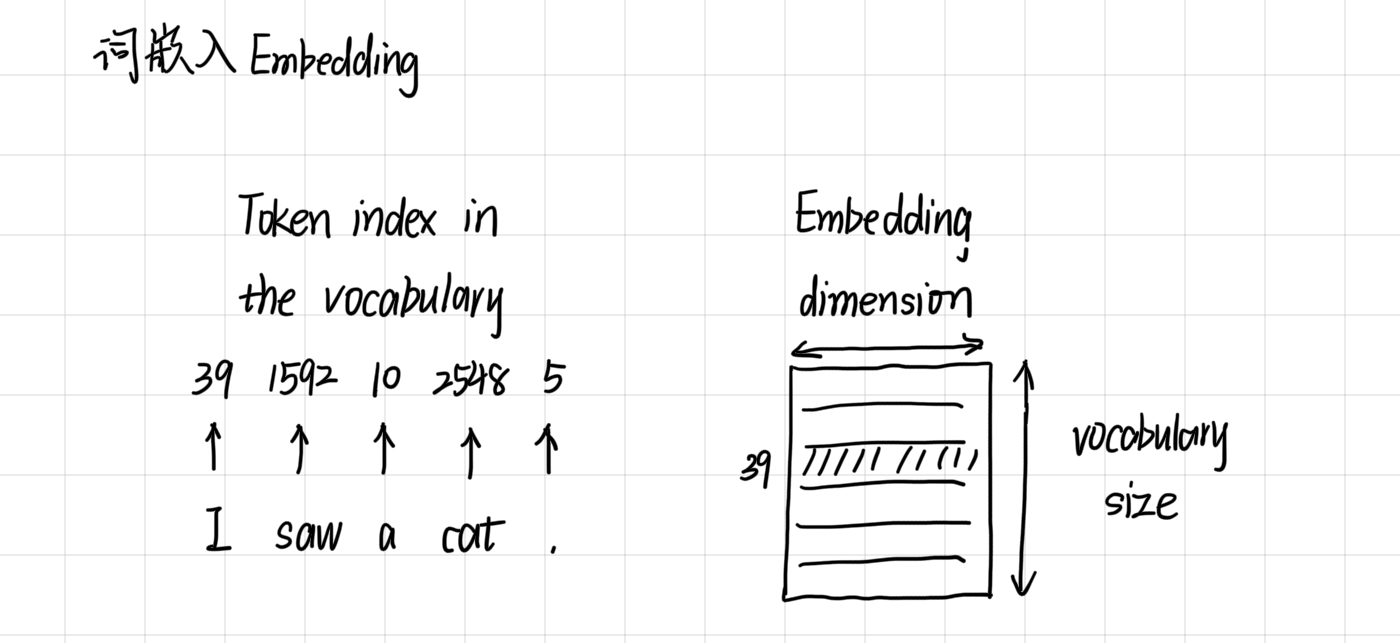 词嵌入 Embedding
Token index in
the vocabulary
39 1592 10 2548 5
I saw a cat .
Embedding
dimension
39
vocabulary
size